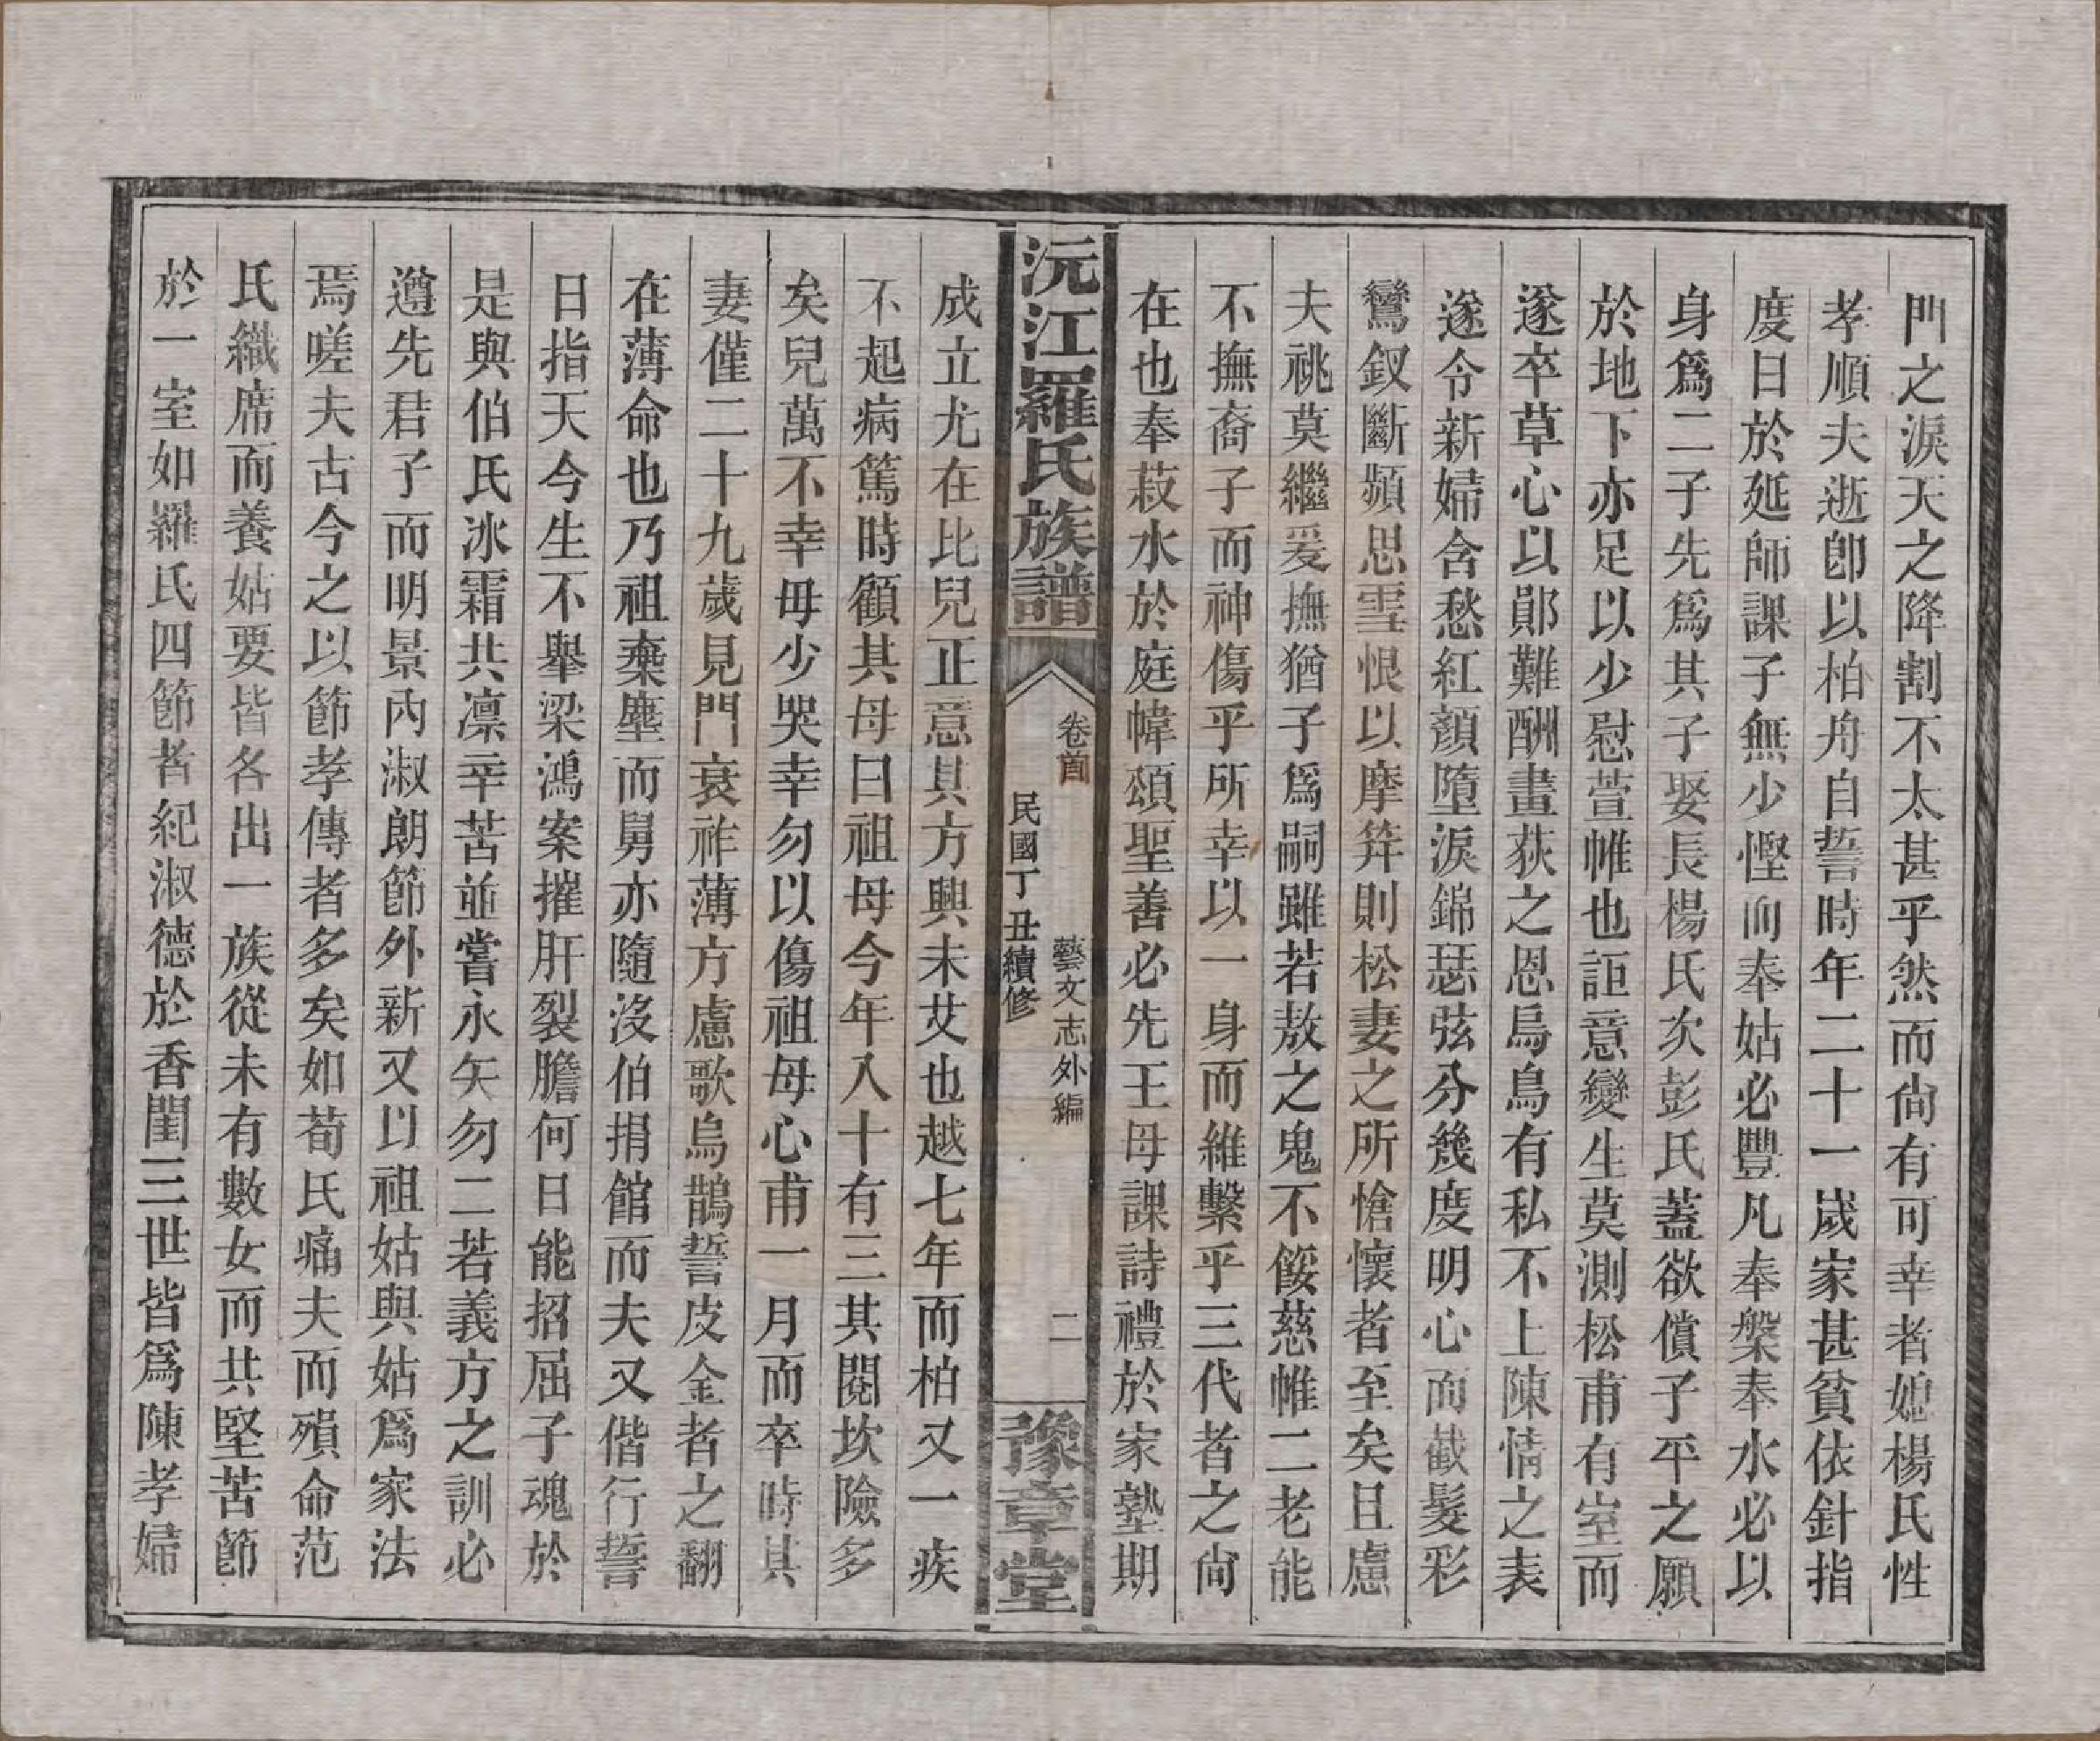 門之淚天之降割不太甚乎然而尙有可幸者媳楊氏性
孝順夫逝卽以柏舟自誓時年二十一歲家甚貧依針指
度日於延師課子無少慳而奉姑必豐凡奉槃奉水必以
身爲二子先爲其子娶長楊氏次彭氏蓋欲償子平之願
於地下亦足以少慰萱帷也詎意變生莫測松甫有室而
遂卒草心以鄖難酬畫荻之恩烏鳥有私不上陳情之表
遂令新婦含愁紅顏墮淚錦瑟弦分幾度明心而截髮彩
鸞釵斷頻思雪恨以摩笄則松妻之所愴懷者至矣且慮
夫祧莫繼爰撫猶子爲嗣雖若敖之鬼不餒慈帷二老能
不撫裔子而神傷乎所幸以一身而維繫乎三代者之尙
在也奉菽水於庭幃頌聖善必先王母課詩禮於家塾期
沅江羅氏族譜
卷首
藝文志外編
二
民國丁丑續修
豫章堂
成立尤在比兒正意其方興未艾也越七年而柏又一疾
不起病篤時顧其母曰祖母今年八十有三其閱坎險多
矣兒萬不幸毋少哭幸勿以傷祖母心甫一月而卒時其
妻僅二十九歲見門衰祚薄方慮歌烏鵲誓皮金者之翻
在薄命也乃祖棄塵而舅亦隨沒伯捐館而夫又偕行誓
日指天今生不舉梁鴻案摧肝裂膽何日能招屈子魂於
是與伯氏冰霜共凛辛苦並嘗永矢勿二若義方之訓必
遵先君子而明景內淑朗節外新又以祖姑與姑爲家法
焉嗟夫古今之以節孝傳者多矣如荀氏痛夫而殞命范
氏織席而養姑要皆各出一族從未有數女而共堅苦節
於一室如羅氏四節者紀淑德於香閨三世皆爲陳孝婦